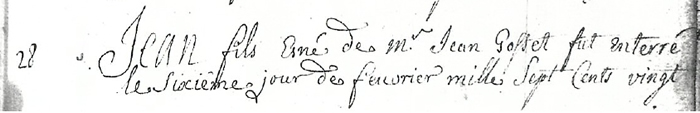 28 JEAN fils Esné de Mr. Jean Gosset fut enterré
le Sixiême jour de feuvrier mille Sept Cents vingt